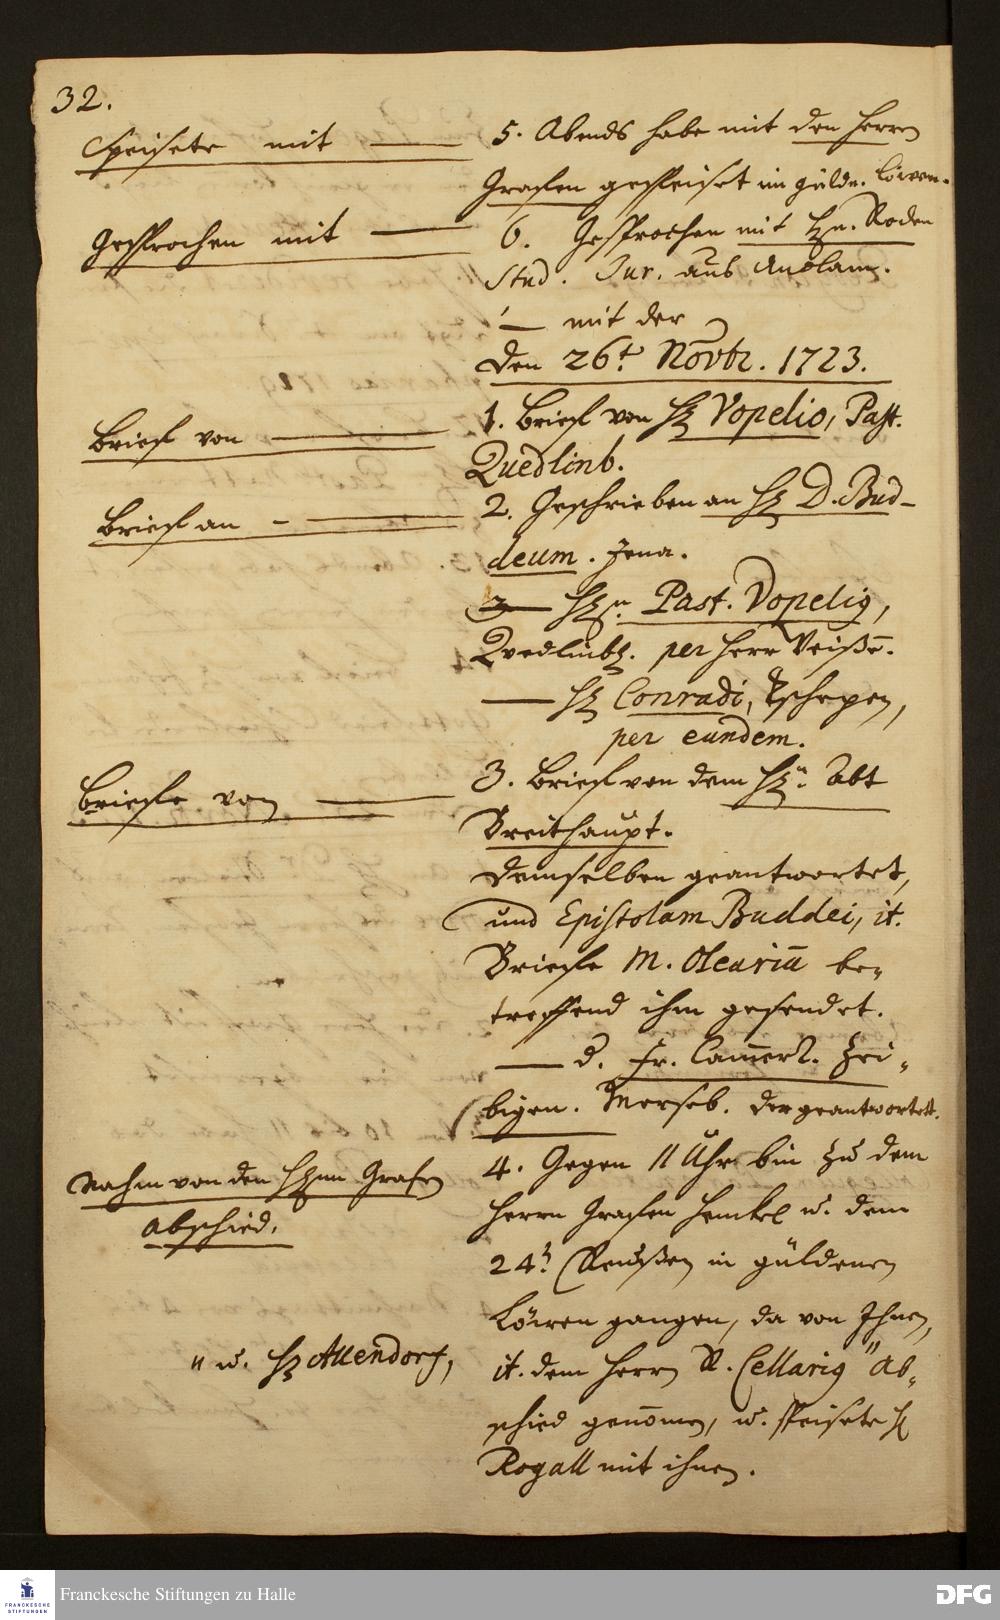 32.
Speisete mit
5. Abends habe mit den Herren
Grafen gespeiset im güldn. Löwen.
Gesprochen mit
6. Gesprochen mit Hn. Roden
Stud. Jur. aus Anclam.
— mit der
Den 26t. Novbr. 1723.
Brief von
1. Brief von H Vopelio, Past.
Quedlinb.
Brief an
2. Geschrieben an H D. Bud-
deum. Jena.
— Hn. Past. Vopelig,
Quedlinb. per Herr Weißen.
— H Conradi,
per eundem.
Briefe von
3. Brief von dem Hn. Abt
Breithaupt.
demselben geantwortet,
und Epistolam Buddei, it.
Briefe M. Olearium be-
treffend ihm gesendet.
— d. Fr. Cammerr. Zri-
bigen. Merseb. der geantwortet.
Nahm von den Herrn Grafen
Abschied.
4. Gegen 11 Uhr bin zu dem
Herrn Grafen Henckel u. dem
24t. Reußen in güldenen
Löwen gangen, da von Ihnen,
" u. H Allendorf,
it. dem Herrn R. Cellarig " Ab-
schied genommen, u. speisete H
Rogall mit ihnen.
Franckesche Stiftungen zu Halle
FRANCKESCHE
STIFTUNGEN
DFG